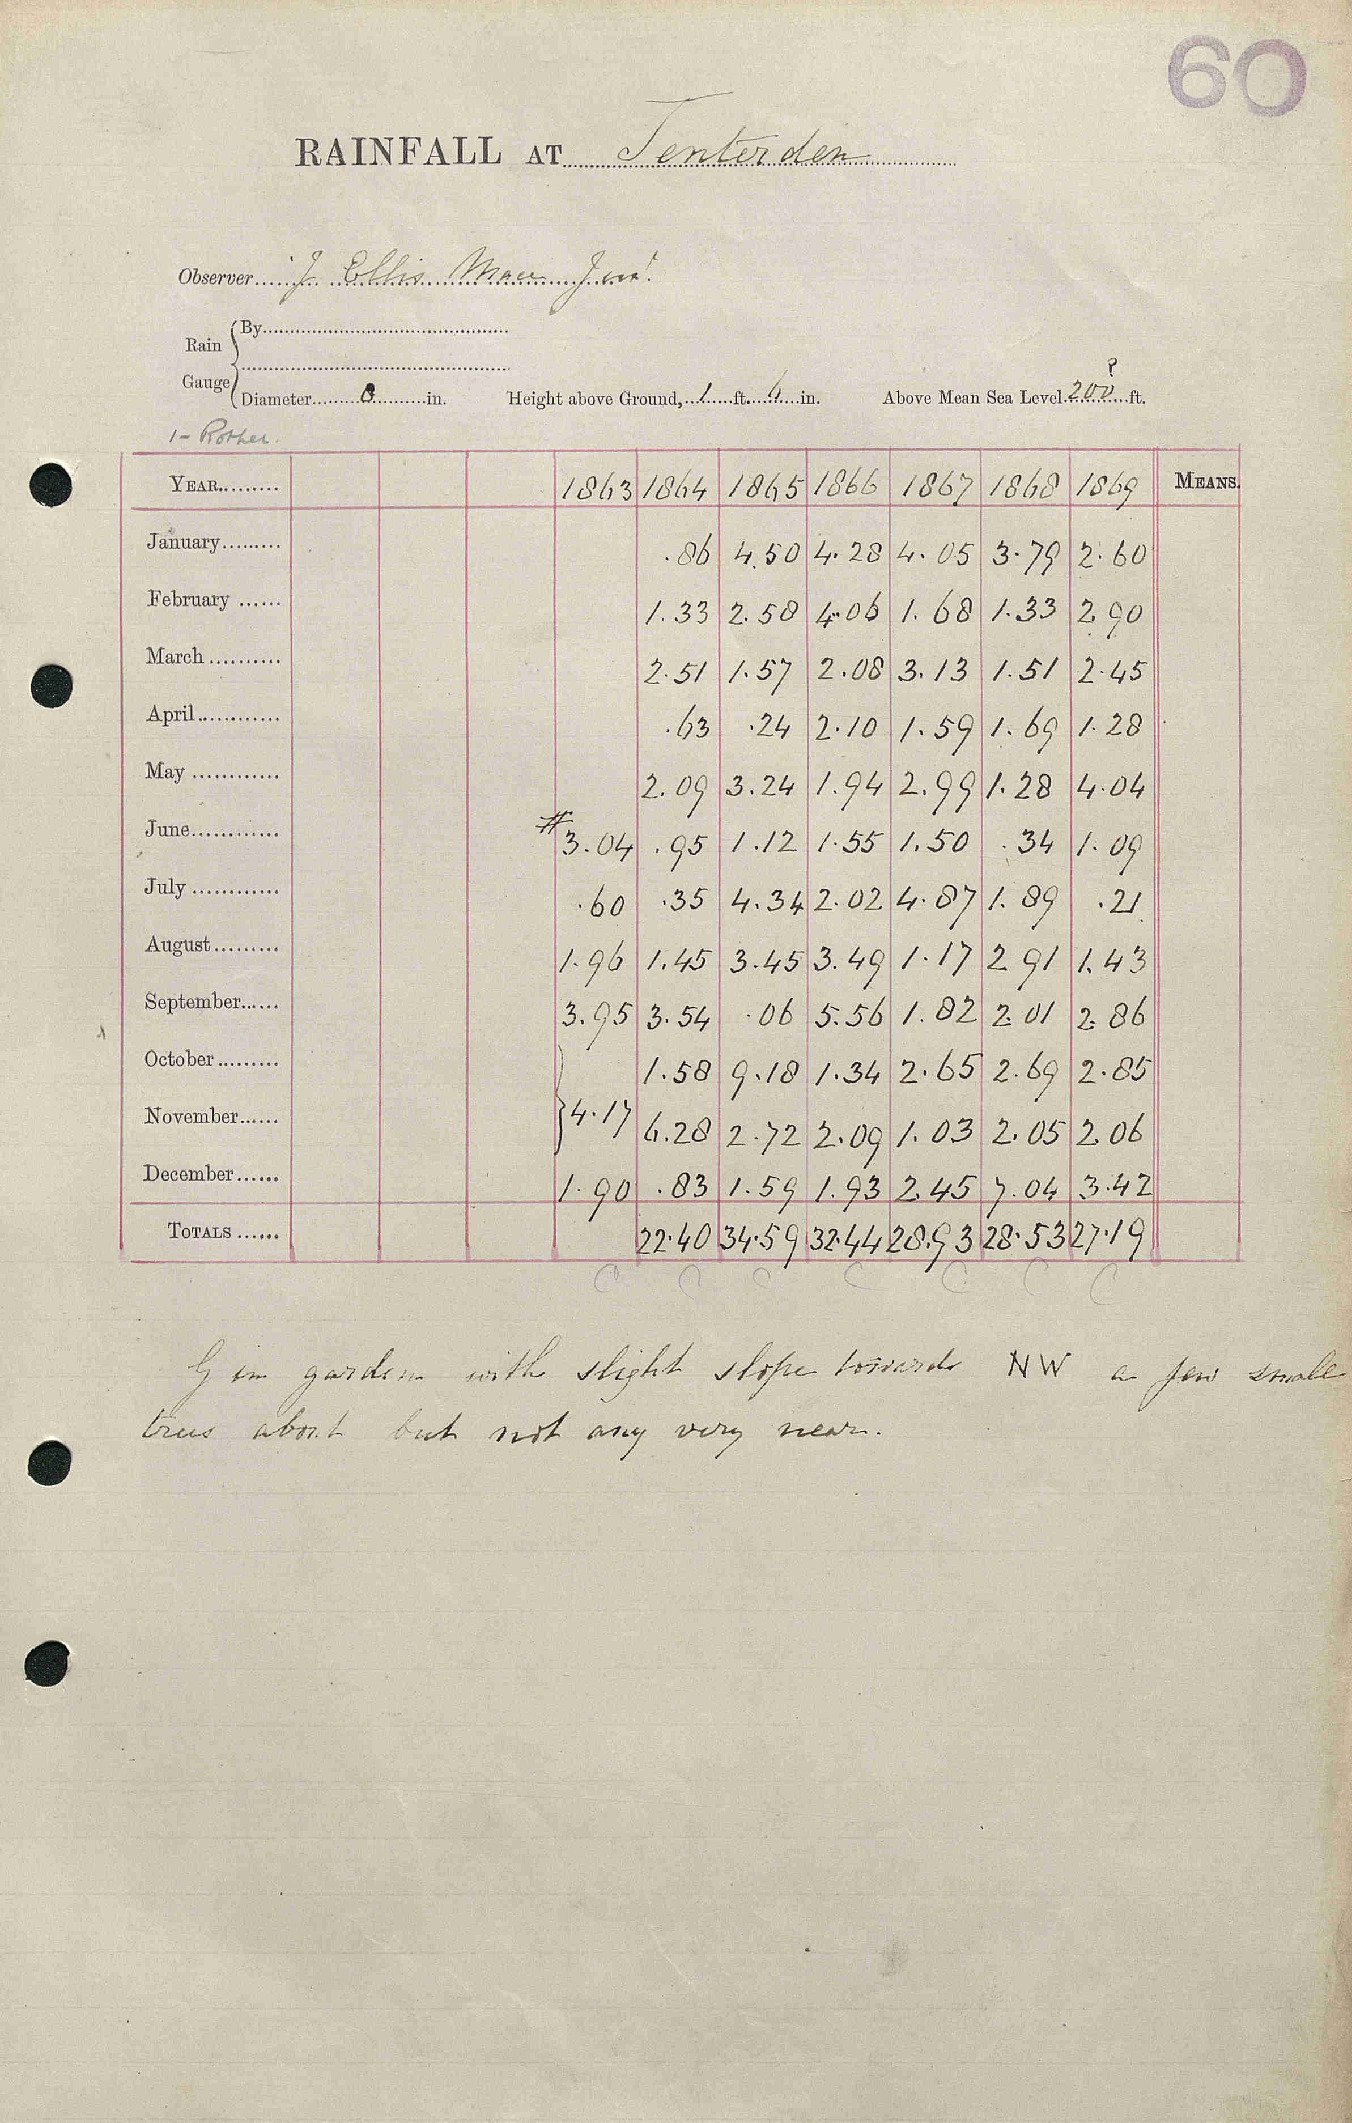 60
RAINFALL AT Tenterden
Observer J Ellis Mace Junr.
Rain Gauge { By
Diameter 8 in. Height above Ground, 1 ft. 6 in. Above Mean Sea Level 200 ? ft.
1- Rother.
YEAR 1863 1864 1865 1866 1867 1868 1869 MEANS.
January .86 4.50 4.28 4.05 3.79 2.60
February 1.33 2.58 4.06 1.68 1.33 2.90
March 2.51 1.57 2.08 3.13 1.51 2.45
April .63 .24 2.10 1.59 1.69 1.28
May 2.09 3.24 1.94 2.99 1.28 4.04
June #3.04 .95 1.12 1.55 1.50 .34 1.09
July .60 .35 4.34 2.02 4.87 1.89 .21
August 1.96 1.45 3.45 3.49 1.17 2.91 1.43
September 3.95 3.54 .06 5.56 1.82 2.01 2.86
October 1.58 9.18 1.34 2.65 2.69 2.85
November } 4.17 6.28 2.72 2.09 1.03 2.05 2.06
December 1.90 .83 1.59 1.93 2.45 7.04 3.42
TOTALS 22.40 34.59 32.44 28.93 28.53 27.19
C C C C C C C
G in garden with slight slope towards NW a few small
trees about but not any very near.